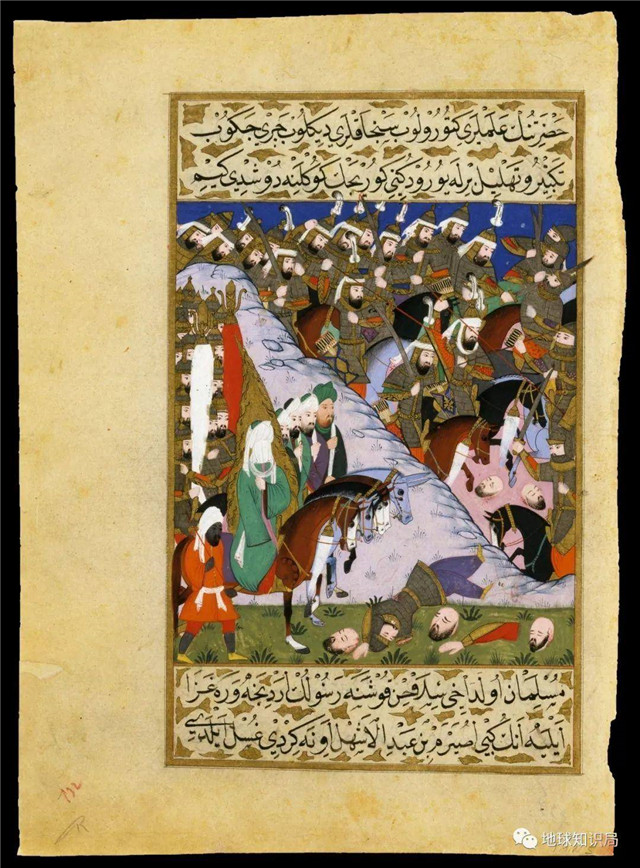 حضرتنك علملرى كتورولوب سنجاقلرى ديكلوب جرى چكوب
تكبير و تهليل برله يورودكنى كوريجك كوكلنه دوشدى كيم
مسلمان اولا اخى سلاحن قوشنه رسولك اردنجه وره غزا
ايليه انك كبى اصيرم بن عبد الاشهل اونه كردى غسل ايلدى
132
R
地球知识局